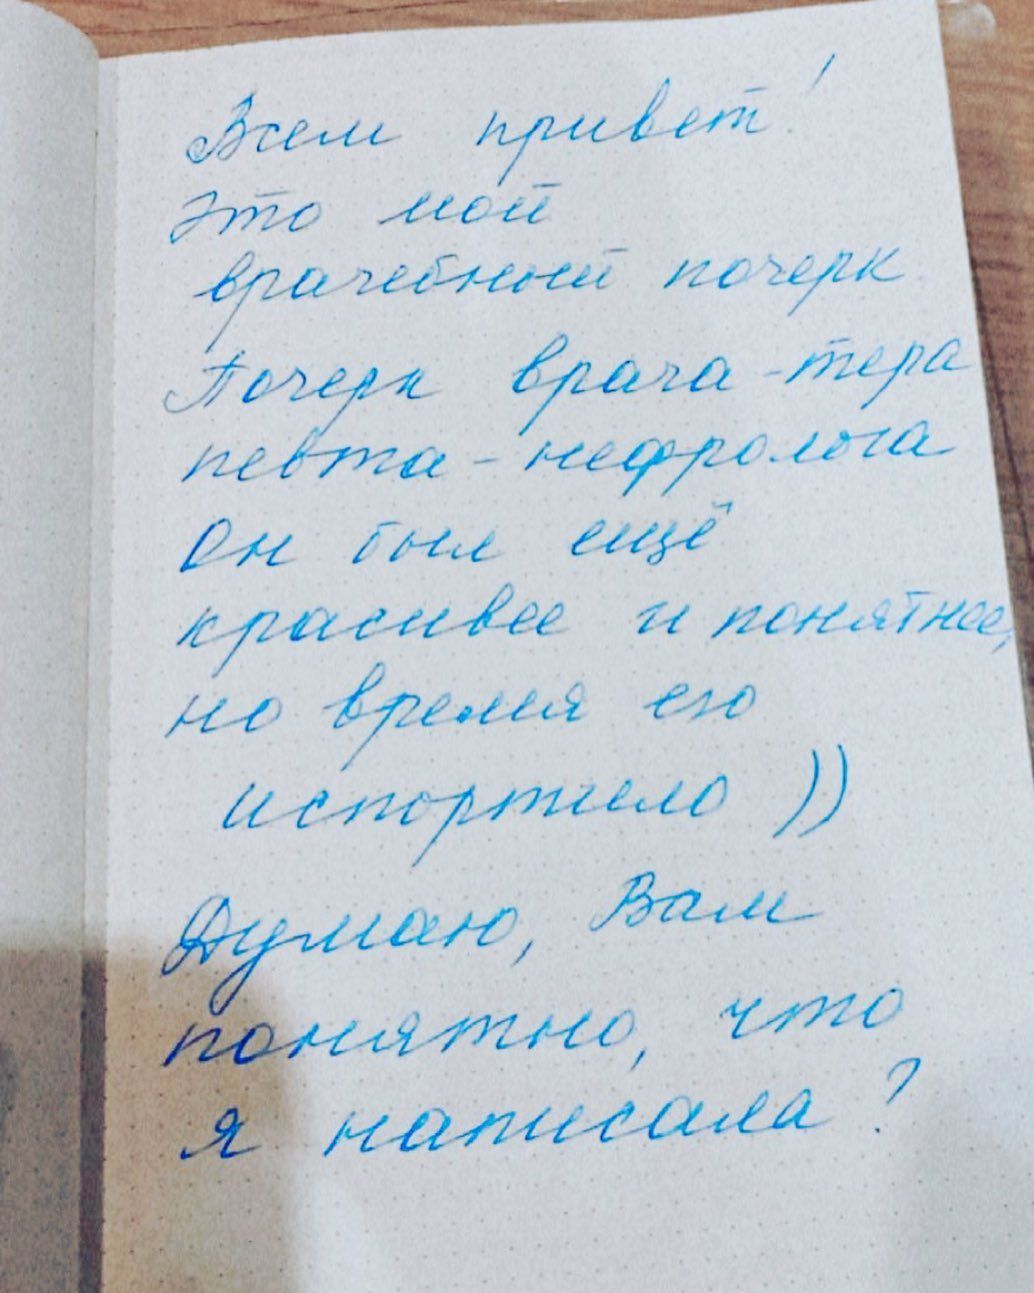 Всем привет!
Это мой
врачебный почерк
Почерк врача-тера
певта-нефролога
Он был ещё
красивее и понятнее,
но время его
испортило ))
Думаю, Вам
понятно, что
я написала?